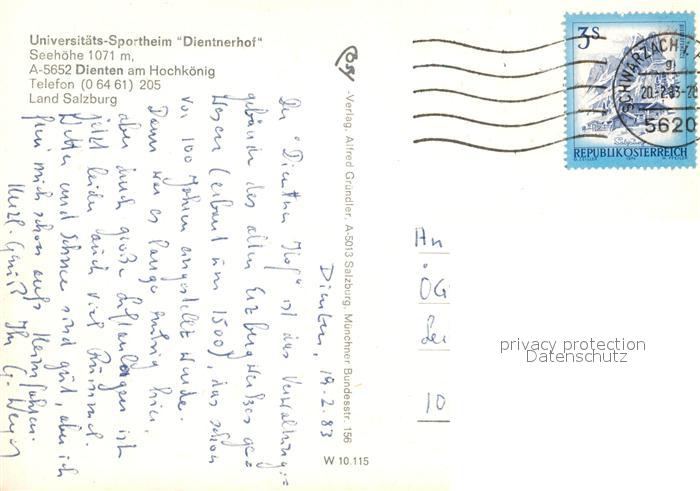 Universitäts-Sportheim "Dientnerhof"
Seehöhe 1071 m,
A-5652 Dienten am Hochkönig
Telefon (0 64 61) 205
Land Salzburg
Cosy -Verlag, Alfred Gründler, A-5013 Salzburg, Münchner Bundesstr. 156
W 10.115
3S
REPUBLIK ÖSTERREICH
SCHWARZACH
20.-2.83-20
5620
Dienten, 19.2.83
Der "Dientner Hof" ist das Verwaltungs=
gebäude des alten Erzbergwerkes ge=
wesen (erbaut um 1500), das schon
vor 100 Jahren eingestellt wurde.
Dann war es lange ruhig hier,
aber durch große Liftanlagen ist
jetzt leider auch viel Rummel.
Wetter und Schnee sind gut, aber ich
freu mich schon aufs Heimfahren.
Herzl. Grüße Ihr G.
An
ÖG
10
privacy protection
Datenschutz